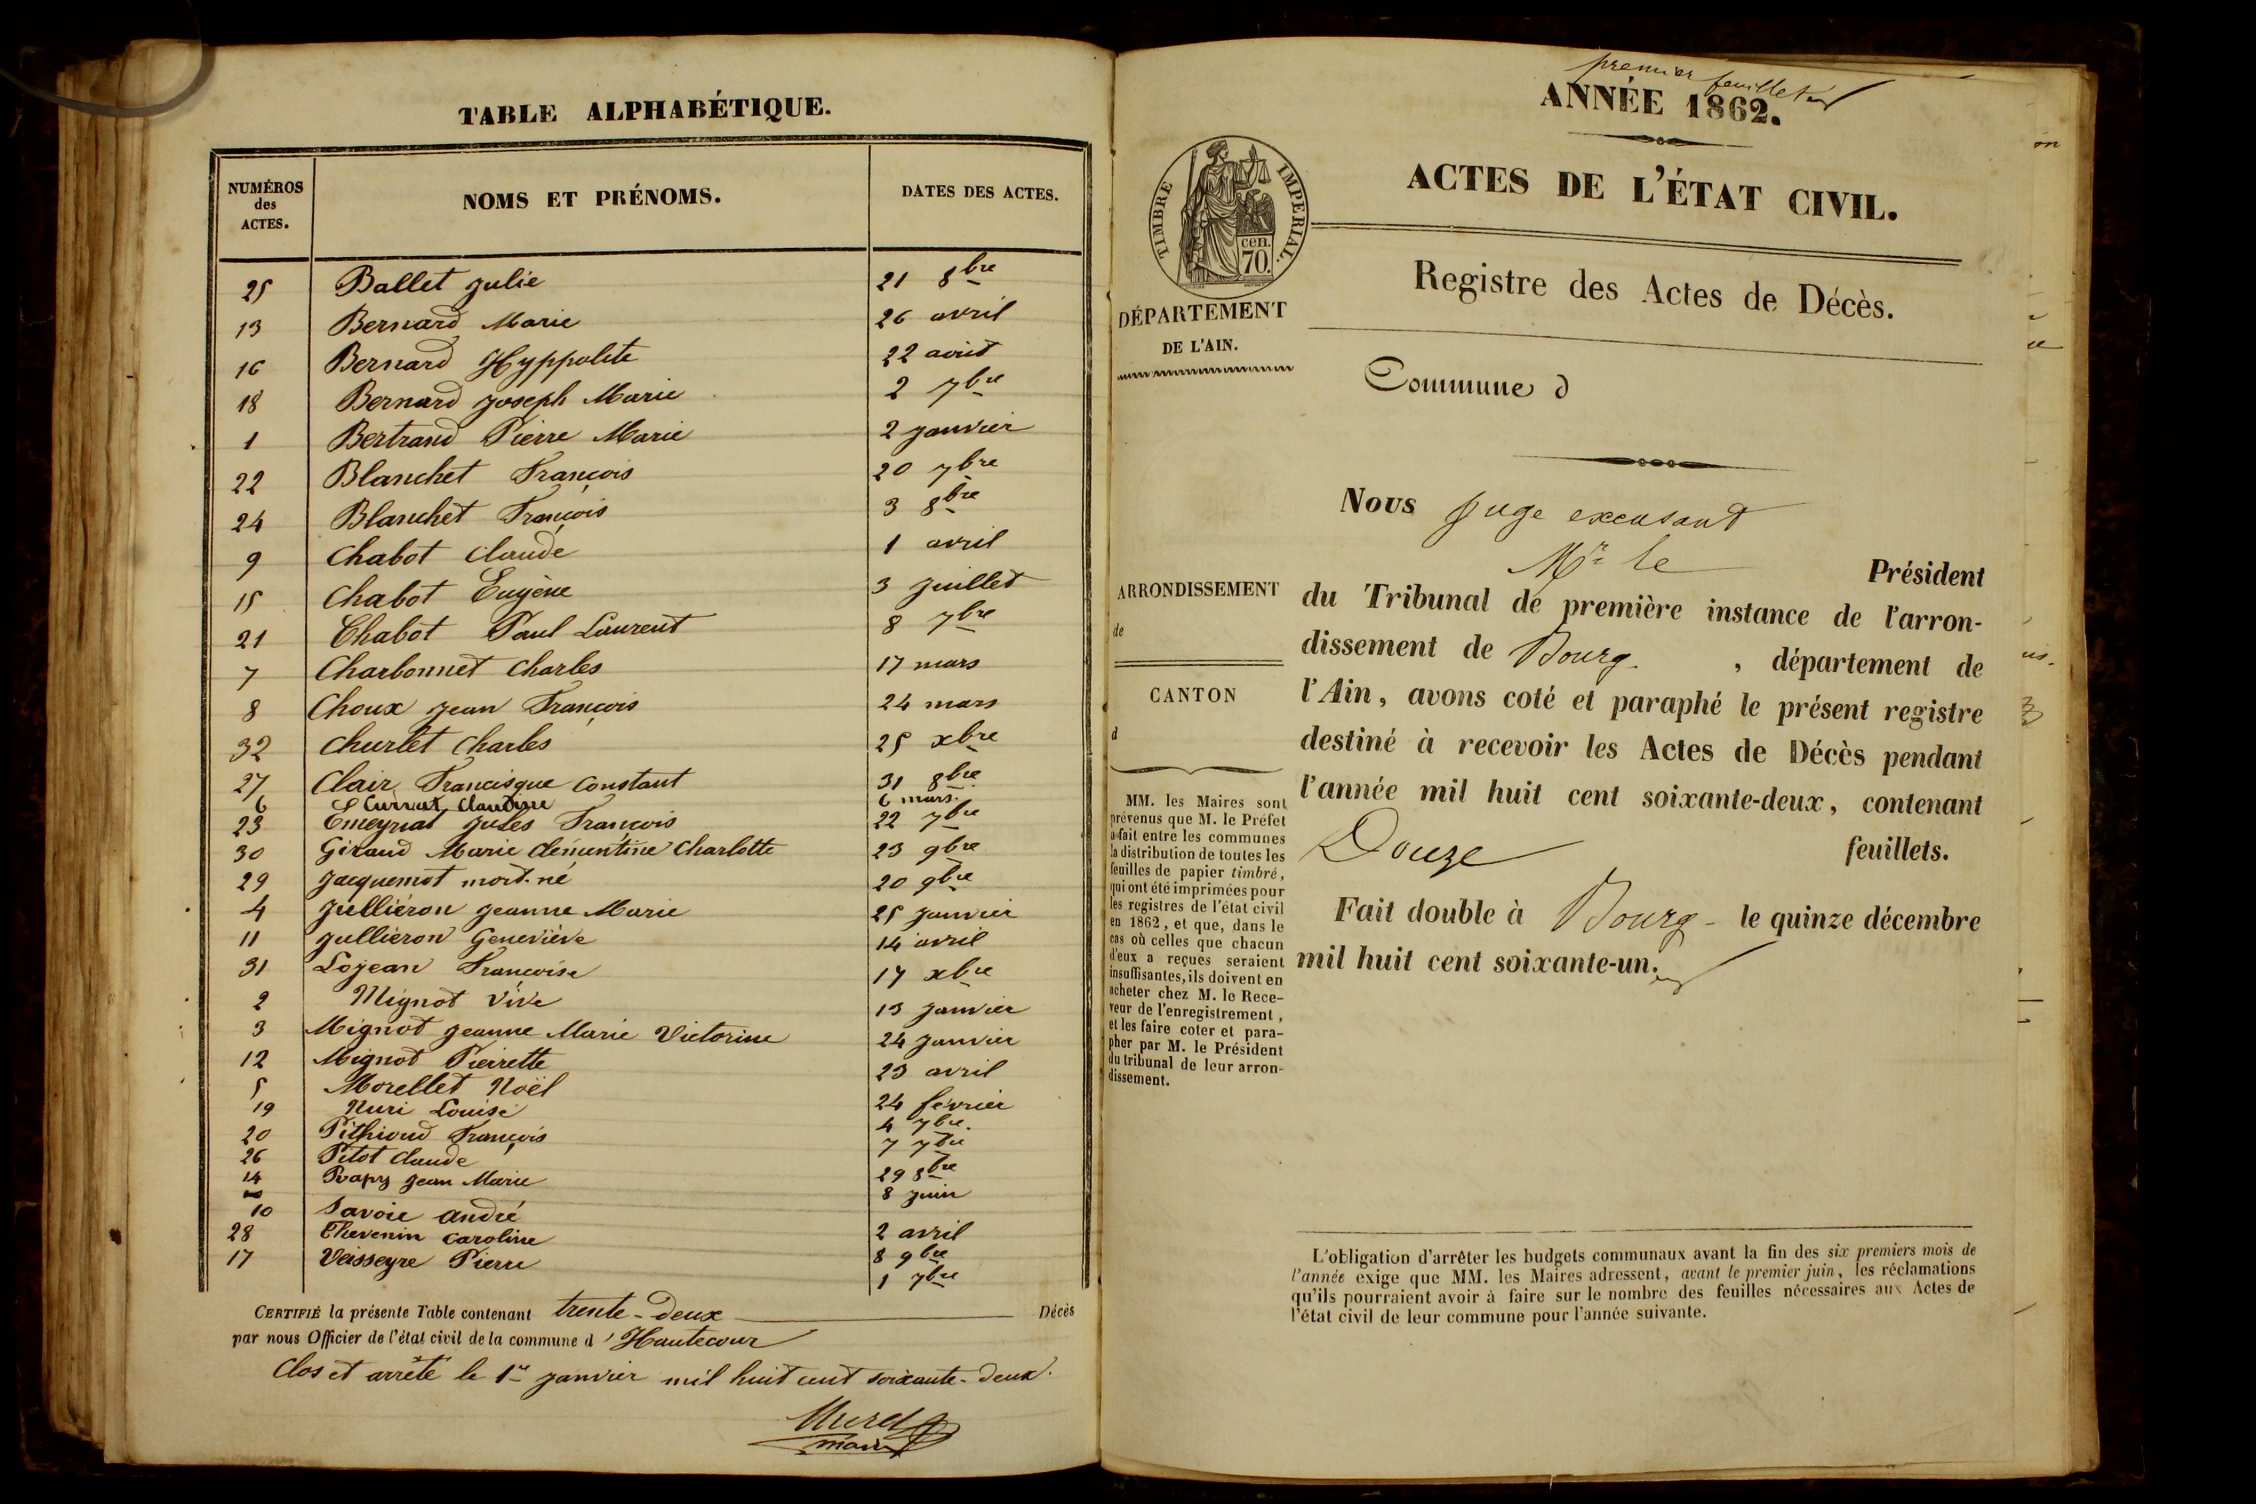 TABLE ALPHABÉTIQUE.
NUMÉROS des ACTES. NOMS ET PRÉNOMS. DATES DES ACTES.
25 Ballet Julie 21 8bre
13 Bernard Marie 26 avril
16 Bernard Hyppolite 22 août
18 Bernard Joseph Marie 2 7bre
1 Bertrand Pierre Marie 2 janvier
22 Blanchet François 20 7bre
24 Blanchet François 3 8bre
9 Chabot Claude 1 avril
15 Chabot Eugène 3 juillet
21 Chabot Paul Laurent 8 7bre
7 Charbonnet Charles 17 mars
8 Choux Jean François 24 mars
32 Churlet Charles 25 xbre
27 Clair Francisque Constant 31 8bre
6 Curvat Claudine 6 mars
23 Emeyriat Jules François 22 7bre
30 Giraud Marie Clémentine Charlotte 23 9bre
29 Jacquemot mort-né 20 9bre
4 Julliéron Jeanne Marie 25 janvier
11 Julliéron Geneviève 14 avril
31 Lojean Françoise 17 xbre
2 Mignot Vive 13 janvier
3 Mignot Jeanne Marie Victorine 24 janvier
12 Mignot Pierrette 23 avril
5 Morellet Noël 24 février
19 Nuri Louise 4 7bre
20 Pithioud François 7 7bre
26 Pitot Claude 29 8bre
14 Jean Marie 8 juin
10 Savoie André 2 avril
28 Thevenin Caroline 8 9bre
17 Veisseyre Pierre 1 7bre
CERTIFIÉ la présente Table contenant trente-deux Décès
par nous Officier de l'état civil de la commune d' Hautecour
Clos et arrêté le 1er janvier mil huit cent soixante-deux.
Murel
maire
premier feuillet
ANNÉE 1862.
ACTES DE L'ÉTAT CIVIL.
TIMBRE IMPERIAL.
cen.
70.
Registre des Actes de Décès.
DÉPARTEMENT
DE L'AIN.
Commune d
Nous Juge excusant
Mr le Président
ARRONDISSEMENT
de
CANTON
d
du Tribunal de première instance de l'arron-
dissement de Bourg , département de
l'Ain, avons coté et paraphé le présent registre
destiné à recevoir les Actes de Décès pendant
l'année mil huit cent soixante-deux, contenant
Douze feuillets.
Fait double à Bourg le quinze décembre
mil huit cent soixante-un.
MM. les Maires sont
prévenus que M. le Préfet
a fait entre les communes
la distribution de toutes les
feuilles de papier timbré,
qui ont été imprimées pour
les registres de l'état civil
en 1862, et que, dans le
cas où celles que chacun
d'eux a reçues seraient
insuffisantes, ils doivent en
acheter chez M. le Rece-
veur de l'enregistrement,
et les faire coter et para-
pher par M. le Président
du tribunal de leur arron-
dissement.
L'obligation d'arrêter les budgets communaux avant la fin des six premiers mois de
l'année exige que MM. les Maires adressent, avant le premier juin, les réclamations
qu'ils pourraient avoir à faire sur le nombre des feuilles nécessaires aux Actes de
l'état civil de leur commune pour l'année suivante.